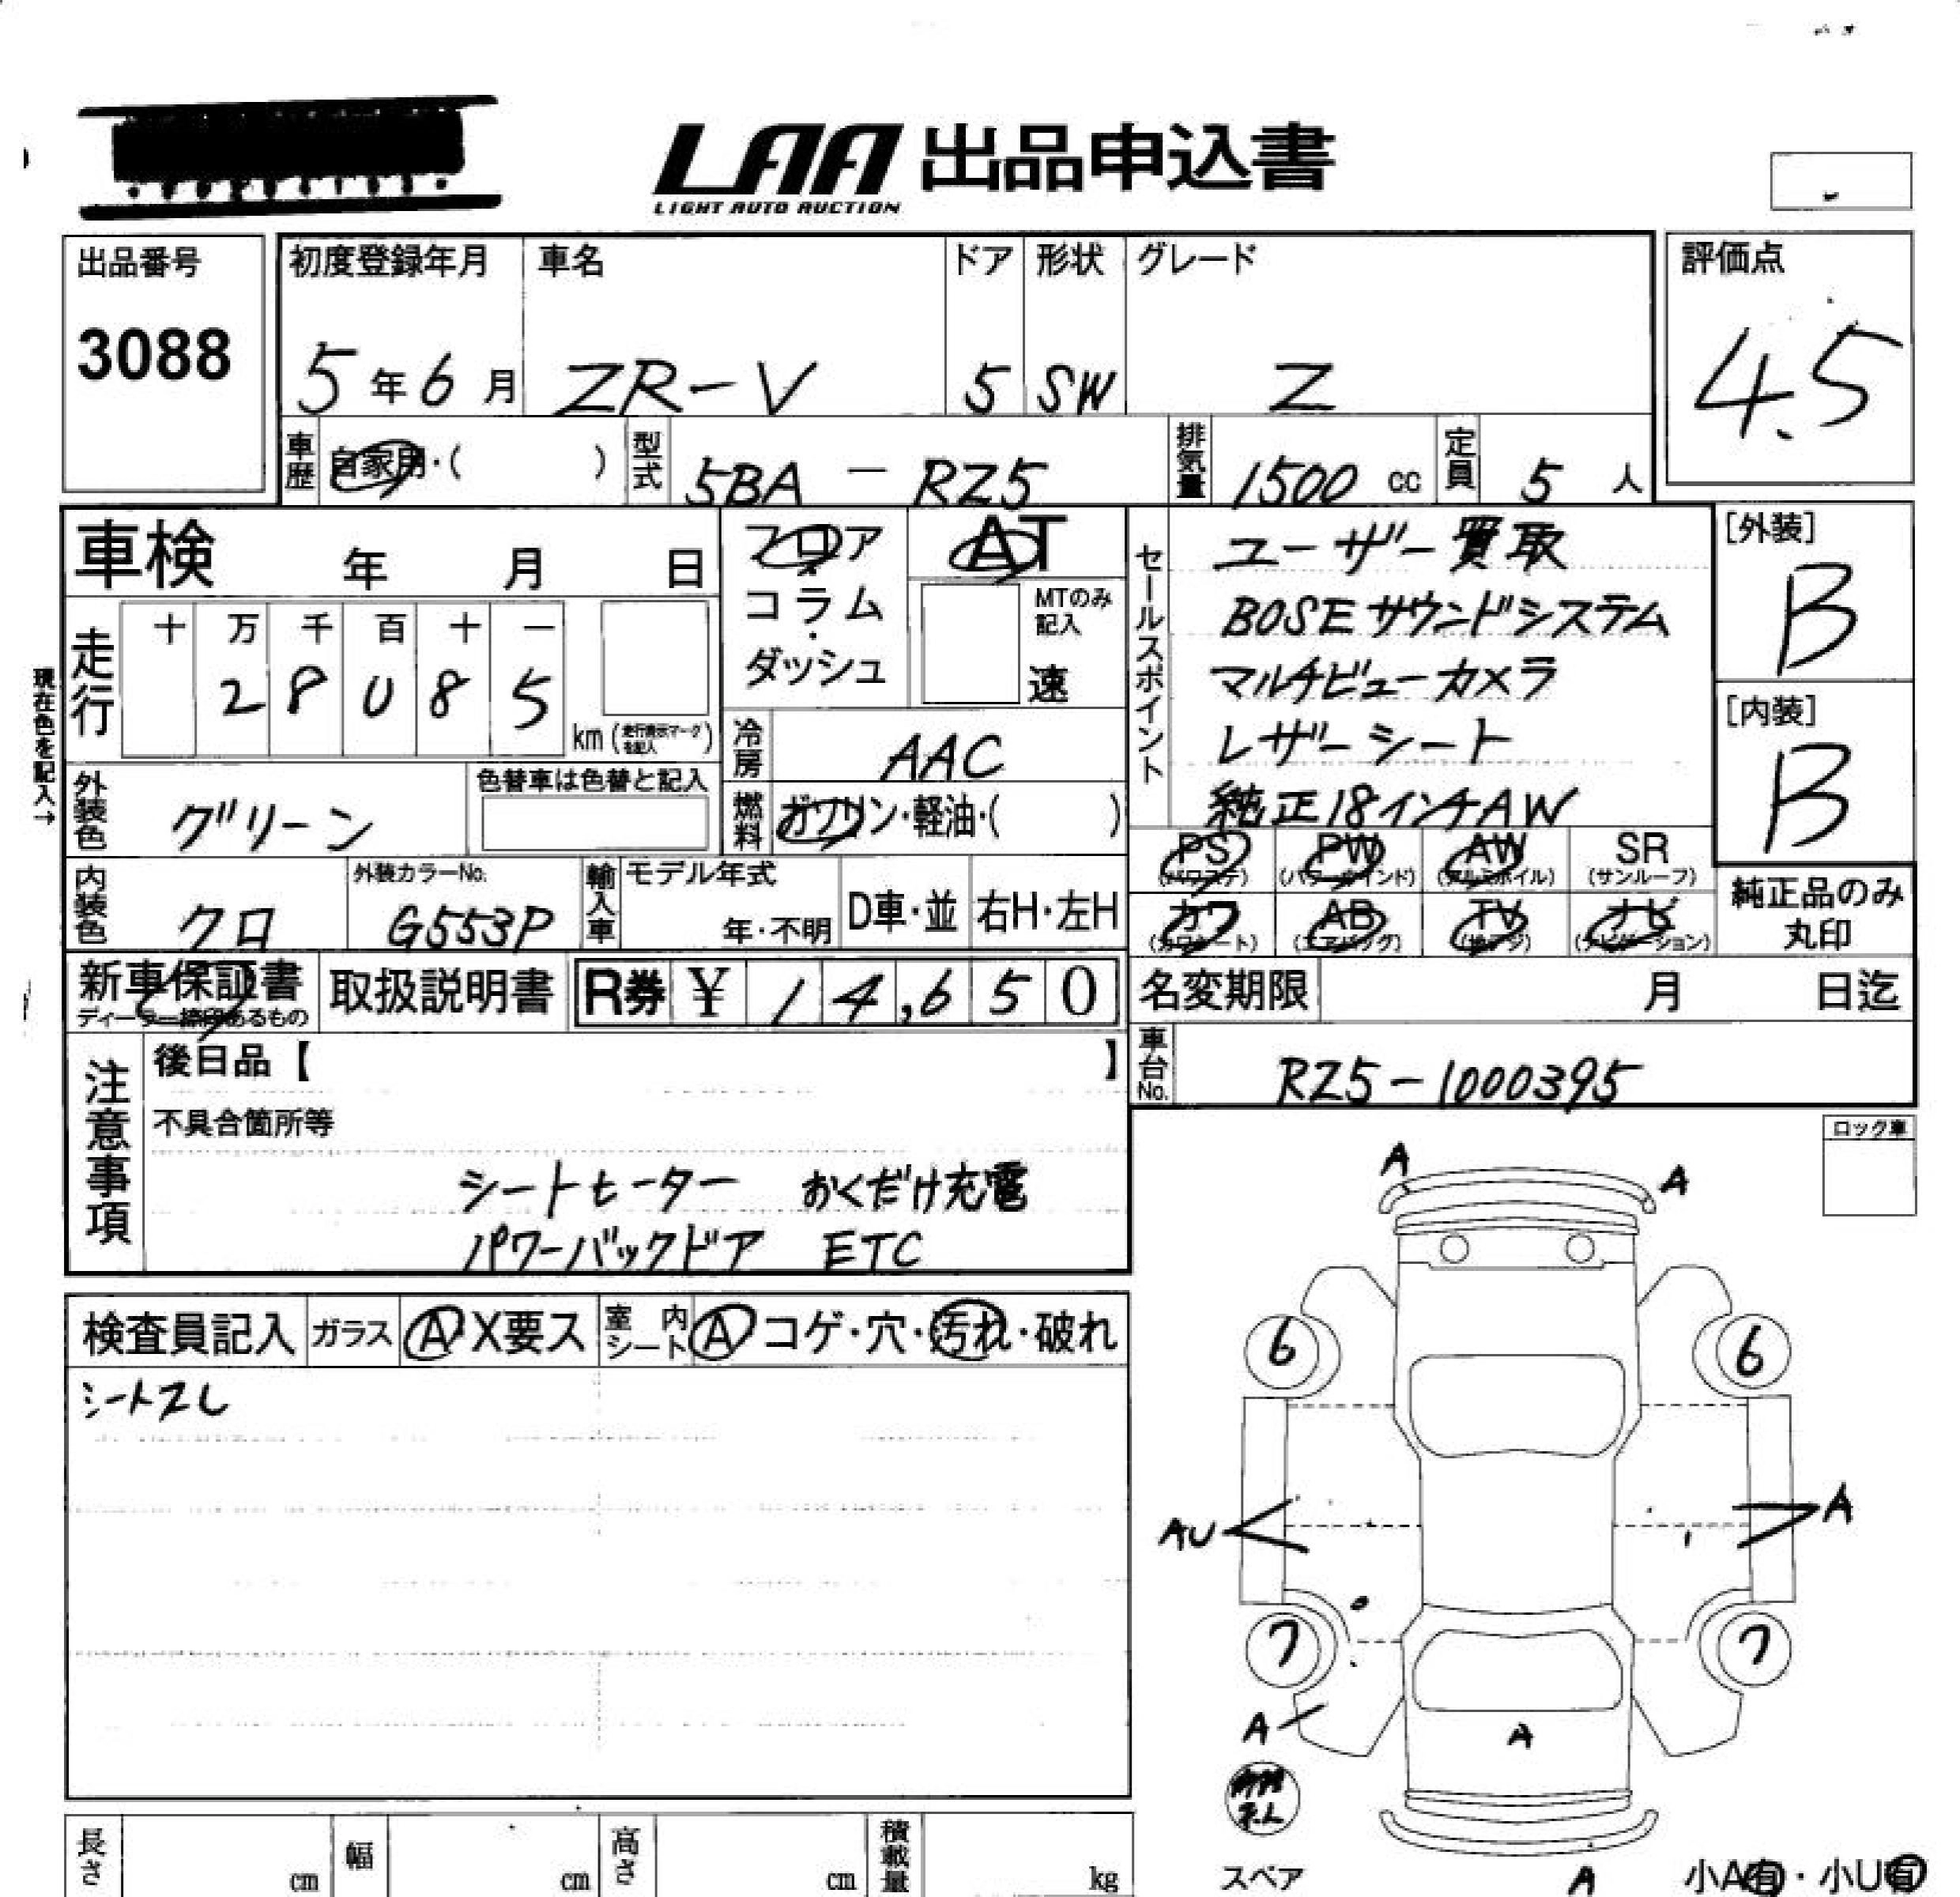 LAA 出品申込書
LIGHT AUTO AUCTION
出品番号
3088
初度登録年月 車名 ドア 形状 グレード
5年6月 ZR-V 5 SW Z
評価点
4.5
車歴 自家用・( ) 型式 5BA - RZ5 排気量 1500 cc 定員 5 人
車検 年 月 日
フロア・コラム・ダッシュ
AT
MTのみ記入
速
走行 十 万 千 百 十 一
2 8 0 8 5 km (走行表示マークを記入)
現在色を記入→
冷房 AAC
外装色 グリーン
色替車は色替と記入
燃料 ガソリン・軽油・( )
内装色 クロ
外装カラーNo.
G553P
輸入車 モデル年式
年・不明 D車・並 右H・左H
セールスポイント
ユーザー買取
BOSEサウンドシステム
マルチビューカメラ
レザーシート
純正18インチAW
[外装]
B
[内装]
B
PS PW AW SR
(パワステ) (パワーウインド) (アルミホイル) (サンルーフ)
カワ AB TV ナビ
(カワシート) (エアバッグ) (地デジ) (ナビゲーション)
純正品のみ
丸印
新車保証書
ディーラー捺印あるもの
取扱説明書 R券 ¥ 14,650
名変期限 月 日迄
車台No. RZ5-1000395
注意事項
後日品【 】
不具合箇所等
シートヒーター おくだけ充電
パワーバックドア ETC
ロック車
検査員記入 ガラス A X要ス 室内シート A コゲ・穴・汚れ・破れ
シートスレ
A A
6 6
AU A
7 7
A A
スペア
A
小A有・小U有
長さ cm 幅 cm 高さ cm 積載量 kg